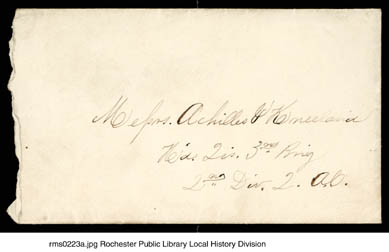 Messrs. Achilles &
Hd. Qrs. 3rd Brig
2nd Div. 2. A.C.
rms0223a.jpg Rochester Public Library Local History Division